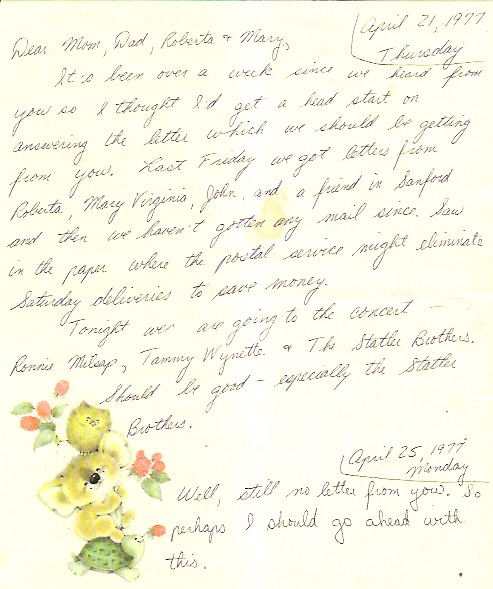 April 21, 1977
Thursday
Dear Mom, Dad, Roberta & Mary,
It's been over a week since we heard from
you so I thought I'd get a head start on
answering the letter which we should be getting
from you. Last Friday we got letters from
Roberta, Mary Virginia, John, and a friend in Sanford
and then we haven't gotten any mail since. Saw
in the paper where the postal service might eliminate
Saturday deliveries to save money.
Tonight we are going to the concert -
Ronnie Milsap, Tammy Wynette & The Statler Brothers.
Should be good - especially the Statler
Brothers.
April 25, 1977
Monday
Well, still no letter from you. So
perhaps I should go ahead with
this.